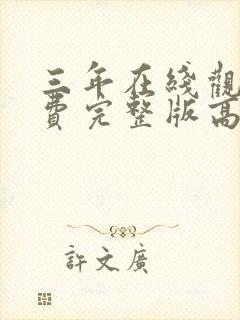 三年在綫觀
費完整版高
許文廣